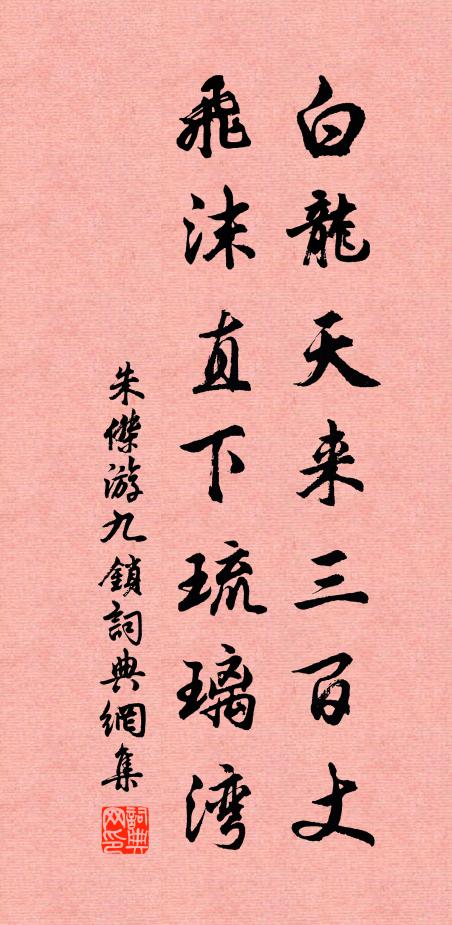 白龍天来三百丈
飛沫直下琉璃湾
朱傑游九鎖詞典網集
詞典网印